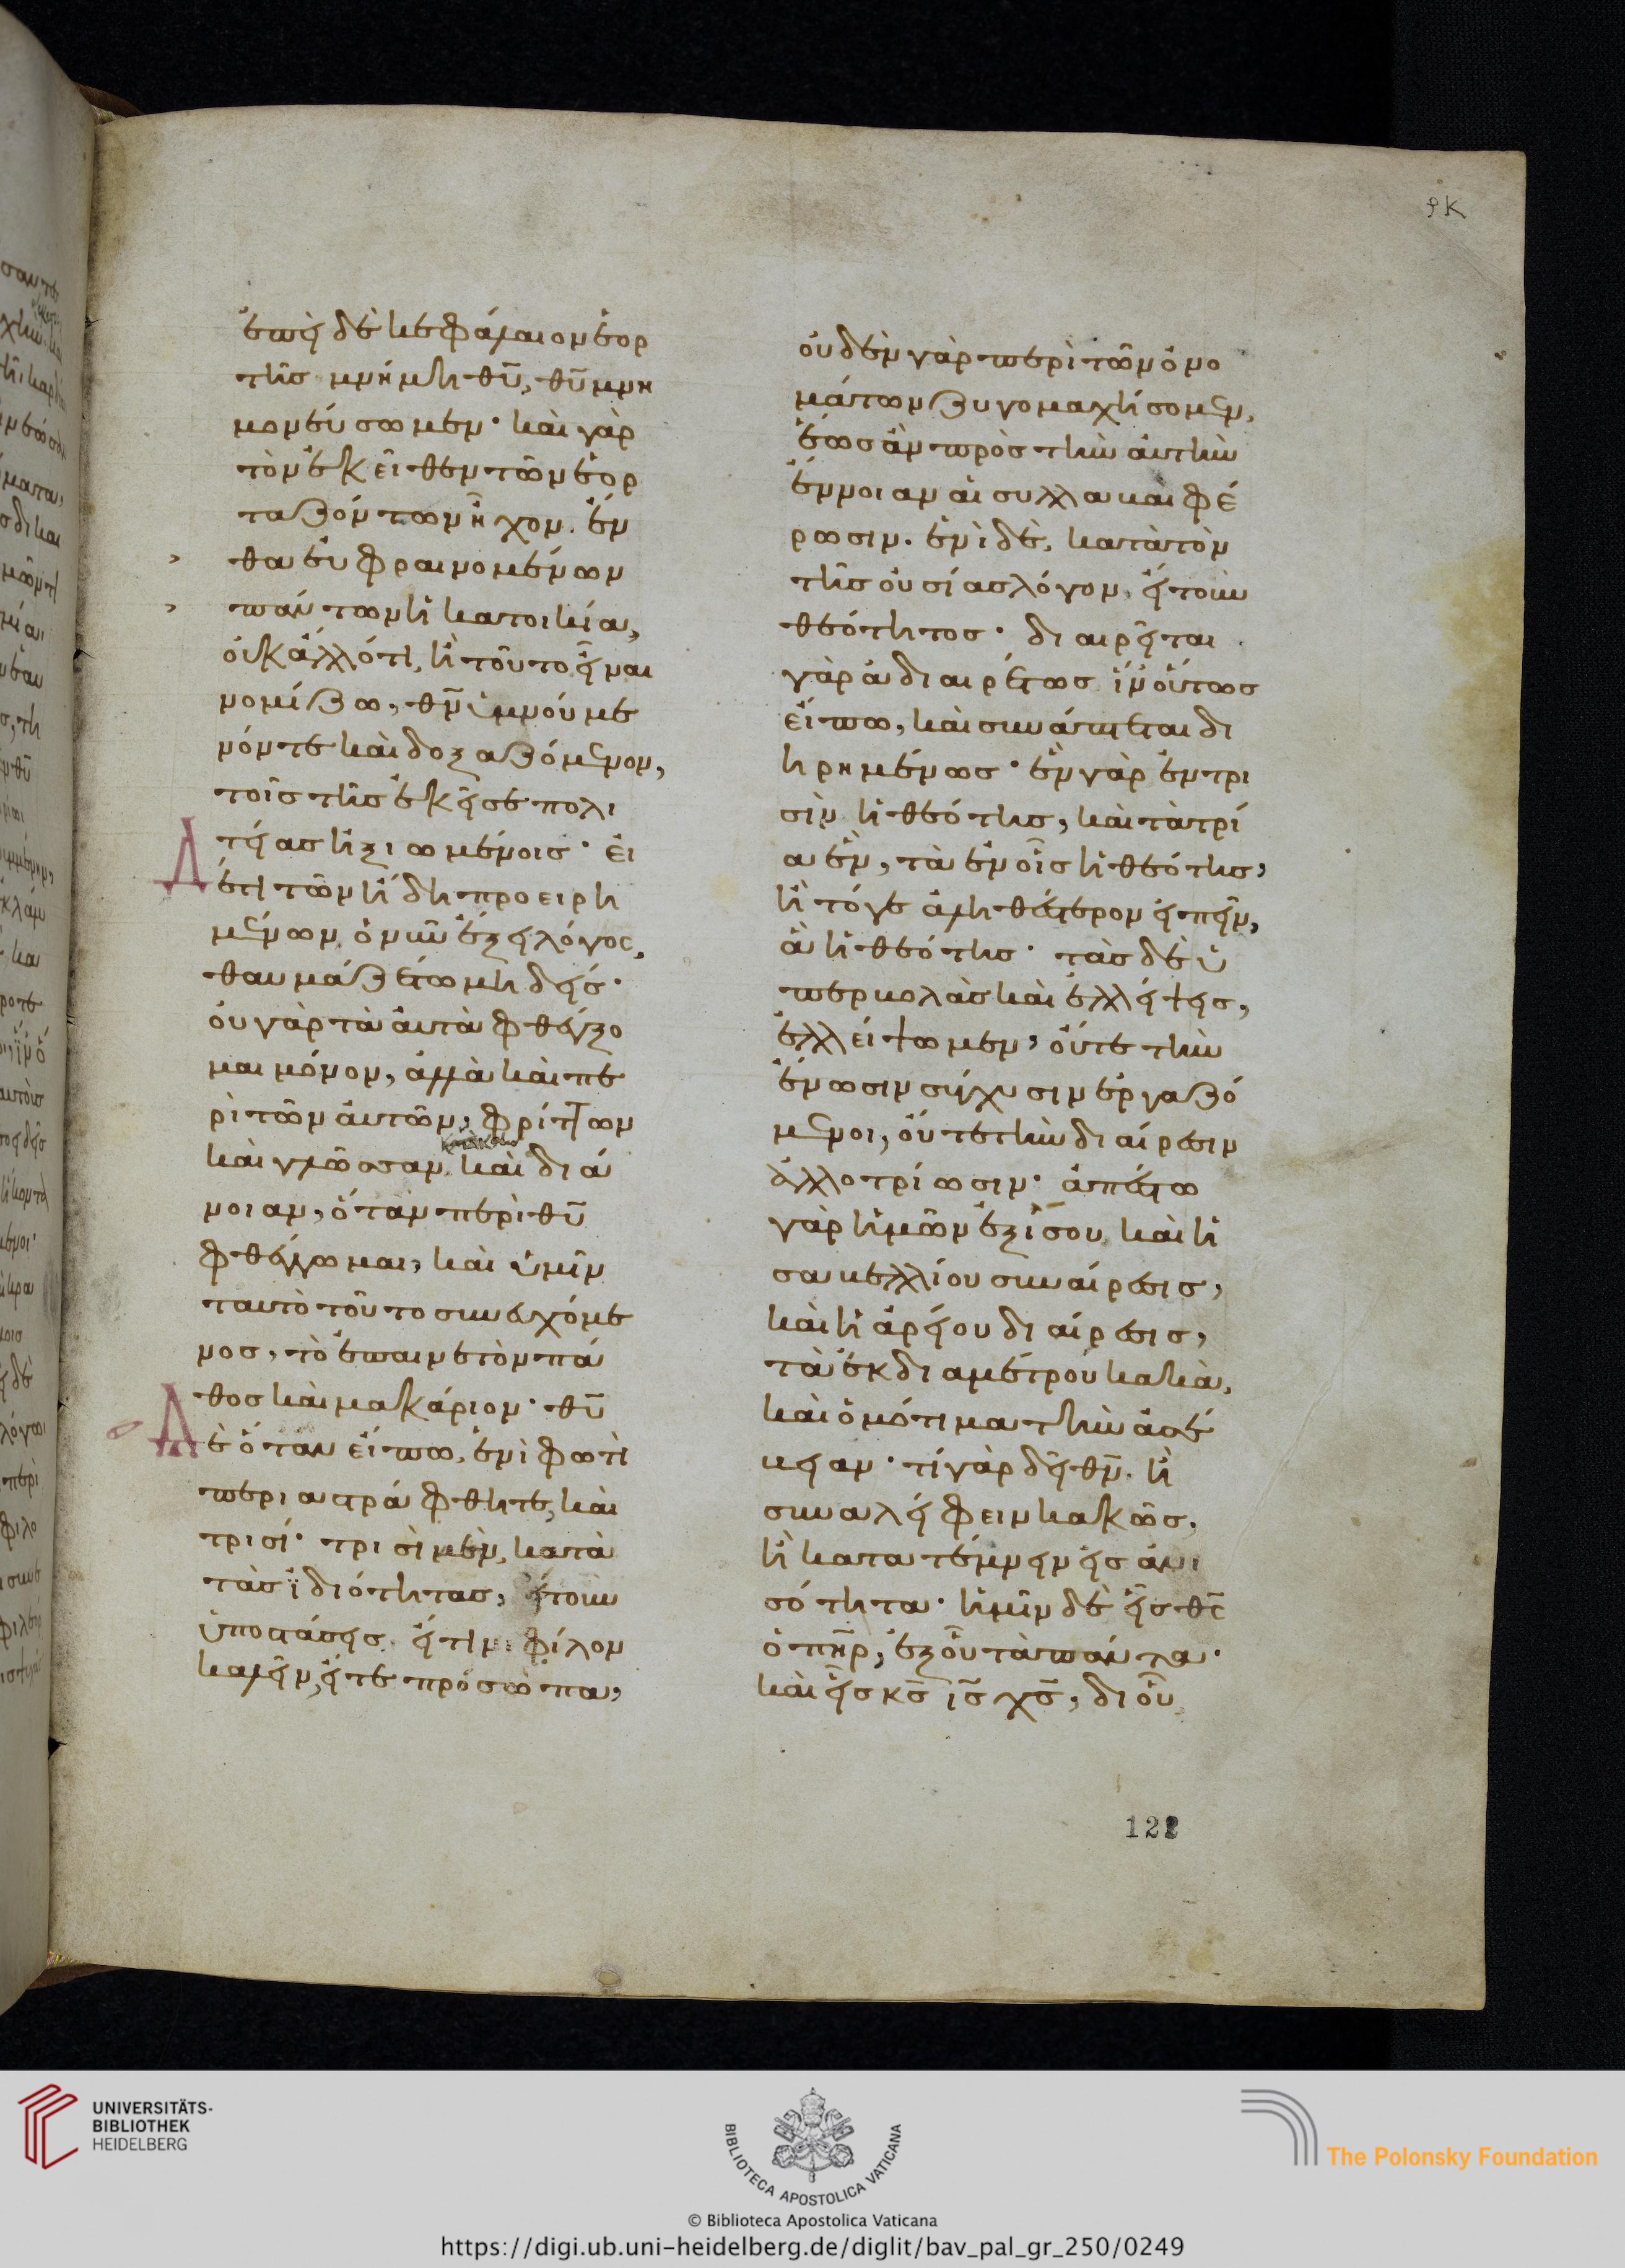 ρκ
ἐπεὶ δὲ κεφάλαιον ἑορ
τῆσ μνήμη θῦ, θῦ μνη
μονεύσωμεν· καὶ γὰρ
τὸν ἐκεῖθεν τῶν ἑορ
ταζόντων ἦχον. ἔν
θα εὐφραινομένων
πάντων ἡ κατοικία,
οὐκ ἄλλό τι, ἢ τοῦτο εἶναι
νομίζω, θν̄ ὑμνούμε
νόν τε καὶ δοξαζόμενον,
τοῖσ τῆσ ἐκεῖσε πολι
τείασ ἠξιωμένοισ· εἰ
Δ
έτι τῶν ἤδη προειρη
μένων, ὁ νῦν ἕξει λόγος,
θαυμαζέτω μηδείσ·
οὐ γὰρ τὰ αὐτὰ φθέγξο
μαι μόνον, ἀλλὰ καὶ πε
ρὶ τῶν αὐτῶν, φρίττων
καὶ γλῶσσαν, καὶ διά
νοιαν, ὅταν περὶ θῦ
φθέγγωμαι, καὶ ὑμῖν
ταυτὸ τοῦτο συνευχόμε
νοσ, τὸ ἐπαινετὸν πά
θοσ καὶ μακάριον· θῦ
Δ
ὲ ὅταν εἴπω, ἑνὶ φωτὶ
περιαστράφθητε, καὶ
τρισί· τρισὶ μὲν, κατὰ
τὰσ ἰδιότητασ, εἴτουν
ὑποστάσεισ. εἴ τινι φίλον
καλεῖν, εἴτε πρόσωπα,
οὐδὲν γὰρ περὶ τῶν ὀνο
μάτων ζυγομαχήσομεν,
ἕωσ ἂν πρὸσ τὴν αὐτὴν
ἔννοιαν αἱ συλλαβαὶ φέ
ρωσιν. ἑνὶ δὲ, κατὰ τὸν
τῆσ οὐσίασ λόγον, εἴτουν
θεότητοσ· διαιρεῖται
γὰρ ἀδιαιρέτωσ ἵν' οὕτωσ
εἴπω, καὶ συνάπτεται δι
ηρημένωσ· ἓν γὰρ ἐν τρι
σὶν ἡ θεότησ, καὶ τὰ τρί
α ἓν, τὰ ἐν οἷσ ἡ θεότησ,
ἢ τό γε ἀληθέστερον εἰπεῖν,
ἃ ἡ θεότησ· τὰσ δὲ ὑ
περβολὰσ καὶ ἐλλείψεισ,
ἐλλείψωμεν, οὔτε τὴν
ἕνωσιν σύγχυσιν ἐργαζό
μενοι, οὔτε τὴν διαίρεσιν
ἀλλοτρίωσιν· ἀπέστω
γὰρ ἡμῶν ἐξ ἴσου, καὶ ἡ
σαβελλίου συναίρεσισ,
καὶ ἡ ἀρείου διαίρεσισ,
τὰ ἐκ διαμέτρου κακὰ,
καὶ ὁμότιμα τὴν ἀσέ
βειαν· τί γὰρ δεῖ θν̄. ἢ
συναλείφειν κακῶσ.
ἢ κατατέμνειν εἰσ ἀνι
σότητα· ἡμῖν δὲ εἷσ θς̄
ὁ πη̄ρ, ἐξ οὗ τὰ πάντα·
καὶ εἷσ κσ̄ ισ̄ χσ̄, δι οὗ
122
UNIVERSITÄTS-
BIBLIOTHEK
HEIDELBERG
BIBLIOTECA APOSTOLICA VATICANA
The Polonsky Foundation
© Biblioteca Apostolica Vaticana
https://digi.ub.uni-heidelberg.de/diglit/bav_pal_gr_250/0249